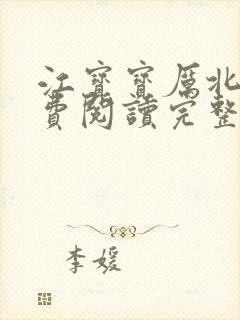 江寶寶厲北
費閱讀完整
李媛